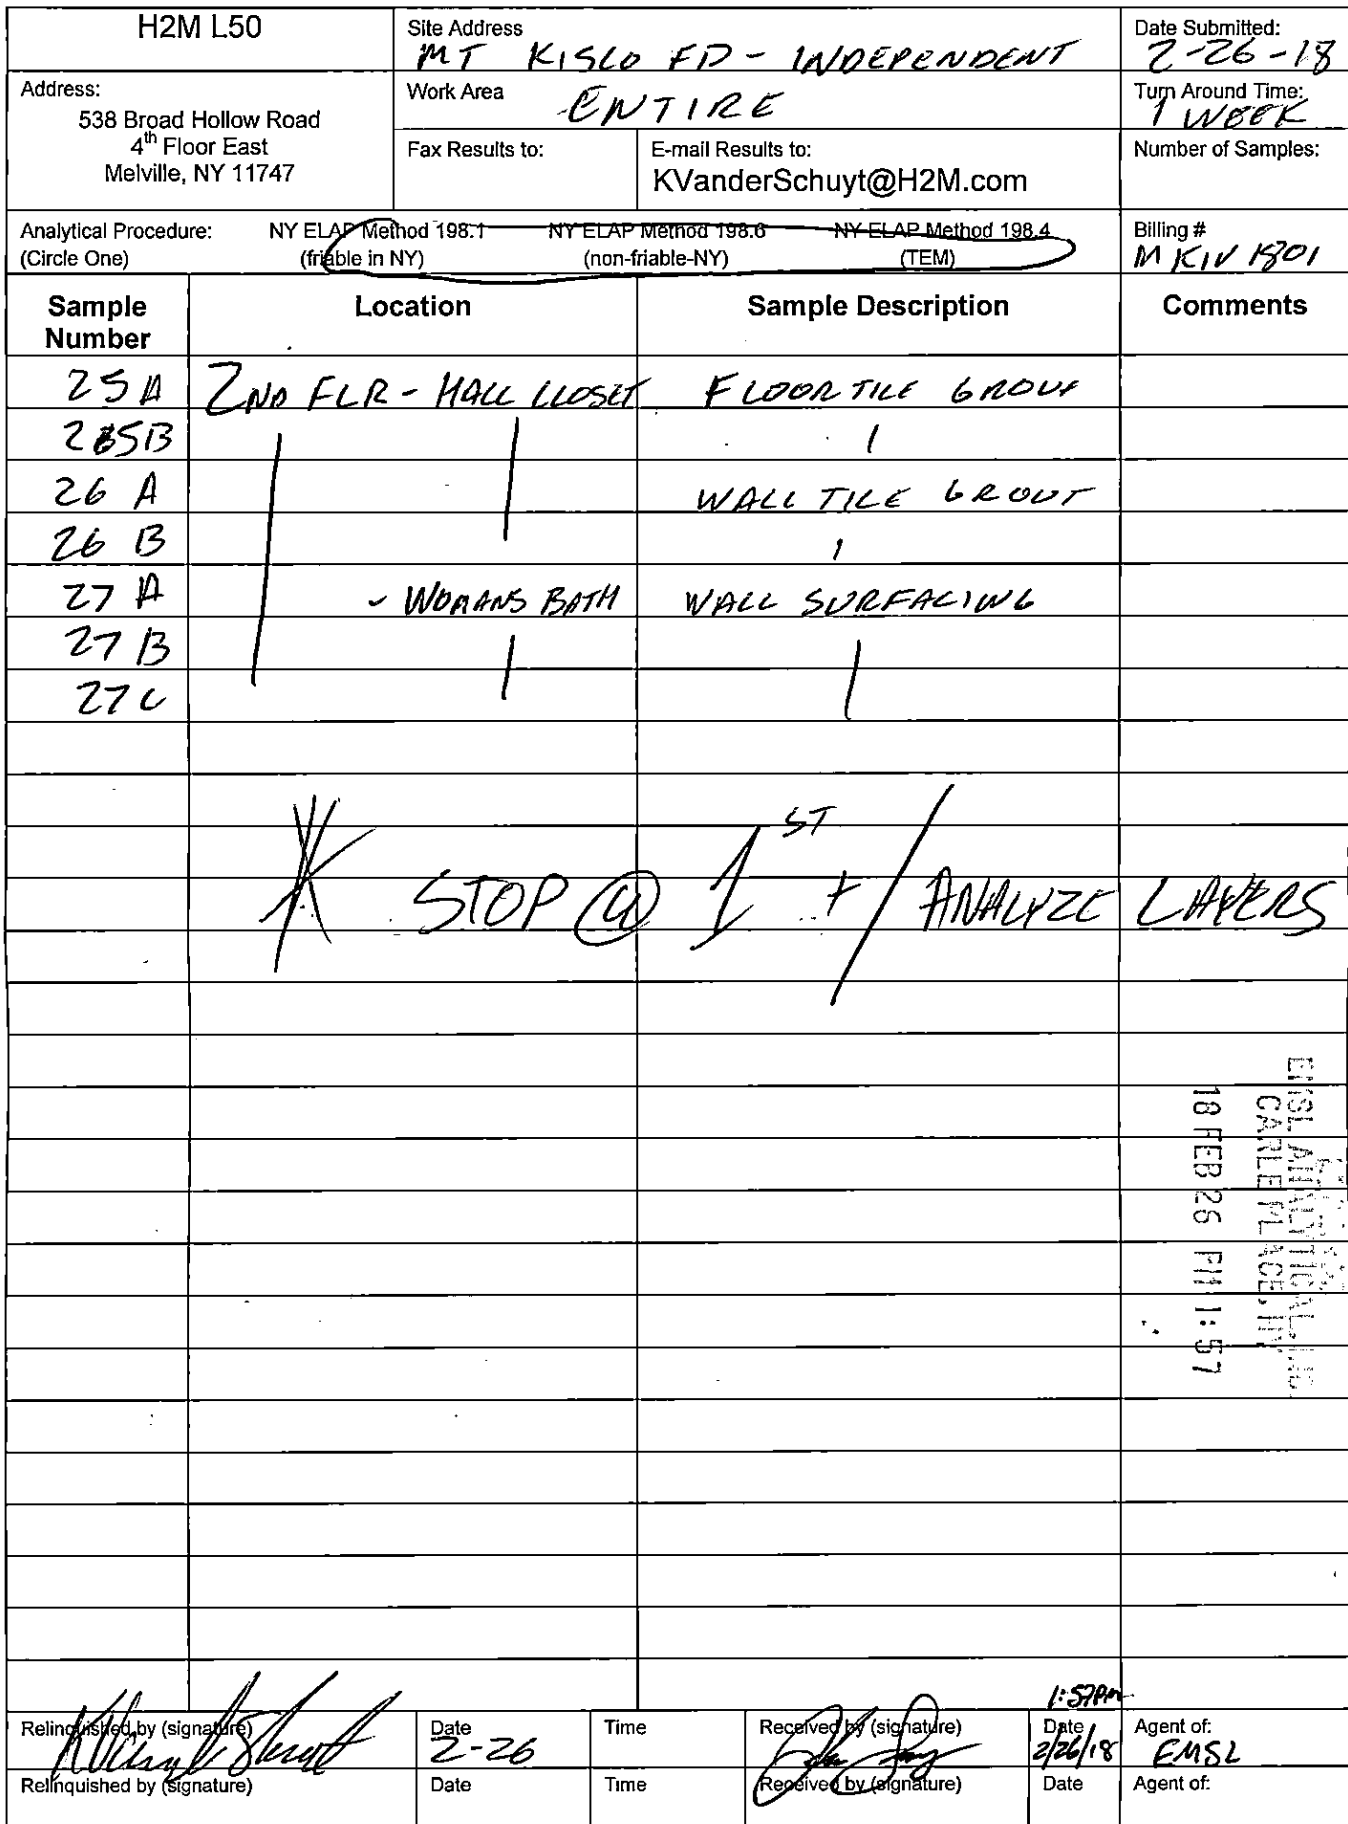 H2M L50
Site Address
MT KISCO FD - INDEPENDENT
Date Submitted:
2-26-18
Address:
538 Broad Hollow Road
4th Floor East
Melville, NY 11747
Work Area
ENTIRE
Turn Around Time:
1 WEEK
Fax Results to:
E-mail Results to:
KVanderSchuyt@H2M.com
Number of Samples:
Analytical Procedure:
(Circle One)
NY ELAP Method 198.1
(friable in NY)
NY ELAP Method 198.6
(non-friable-NY)
NY ELAP Method 198.4
(TEM)
Billing #
MKIV 1801
Sample Number
Location
Sample Description
Comments
25A 2ND FLR - HALL CLOSET FLOOR TILE GROUT
25B
26 A WALL TILE GROUT
26 B
27 A - WOMANS BATH WALL SURFACING
27 B
27 C
STOP @ 1ST + / ANALYZE LAYERS
EMSL ANALYTICAL
CARLE PLACE, NY
18 FEB 26 PM 1:57
Relinquished by (signature)
Date
2-26
Time
Received by (signature)
1:57PM
Date
2/26/18
Agent of:
EMSL
Relinquished by (signature)
Date
Time
Received by (signature)
Date
Agent of: